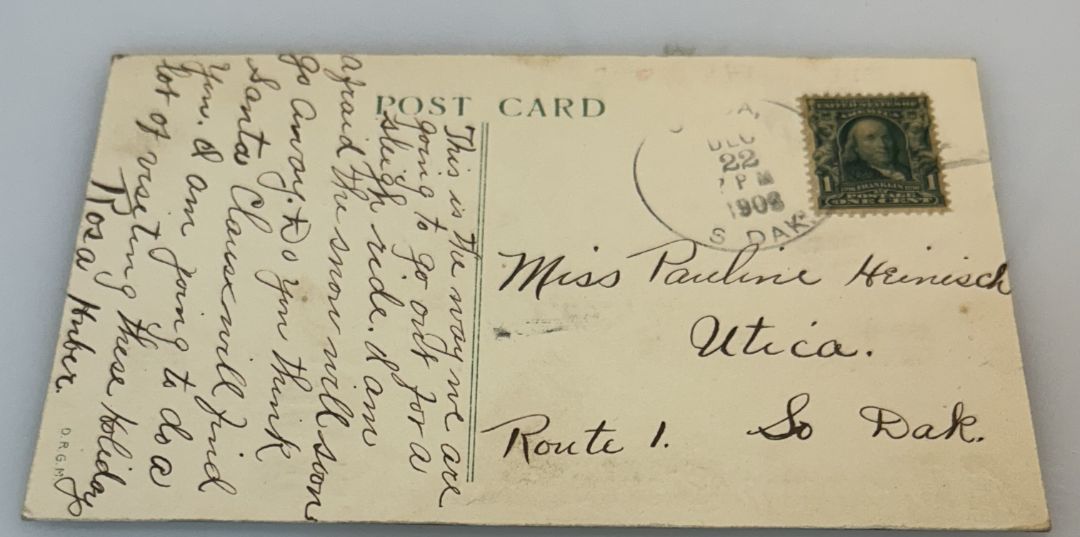 POST CARD
This is the way we are
going to go out for a
sleigh ride. I am
afraid the snow will soon
go away. Do you think
Santa Clause will find
you. I am going to do a
lot of visiting these holidays
Rosa Huber.
D.R.G.M.
A.
DEC
22
7 PM
1908
S DAK.
UNITED STATES OF
AMERICA
1 FRANKLIN 1
POSTAGE
ONE CENT
Miss Pauline Heinisch
Utica.
Route 1. So Dak.